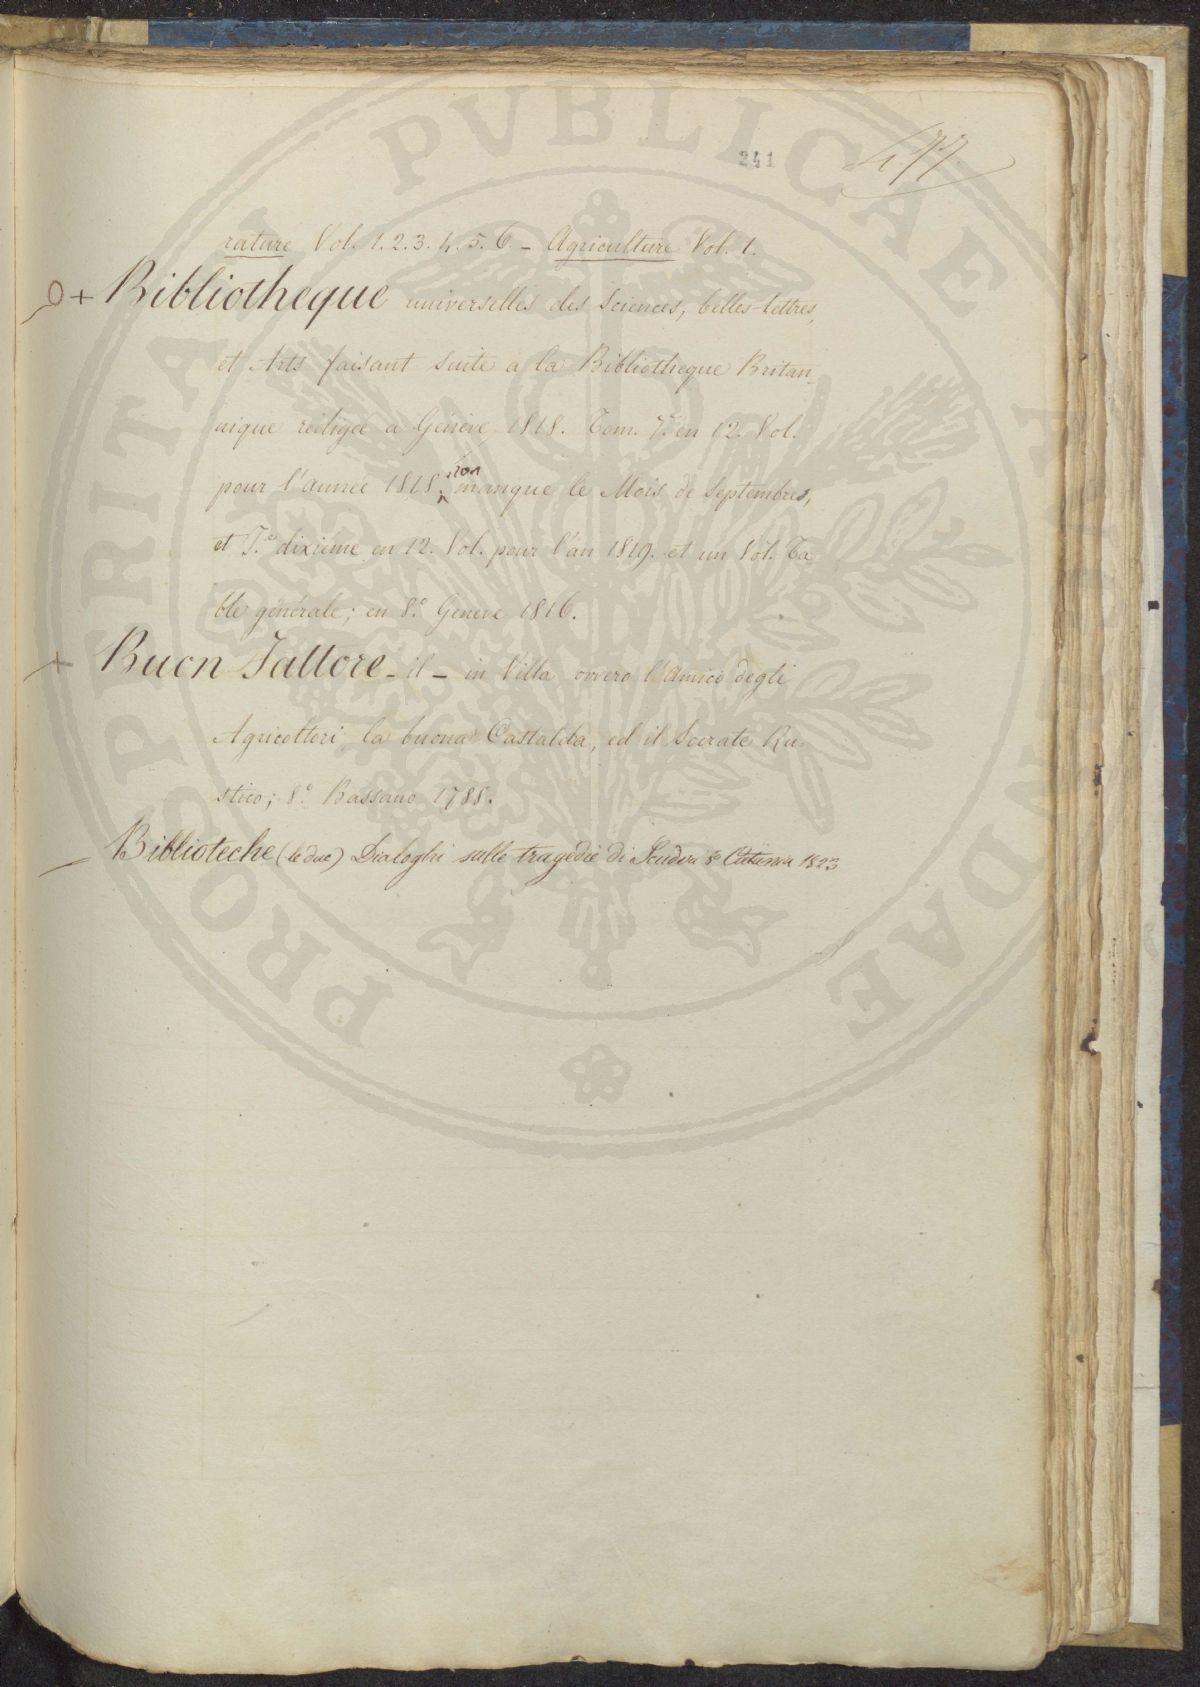 241
477
rature Vol. 1. 2. 3. 4. 5. 6 - Agriculture Vol. 1.
O+ Bibliotheque universelles des Sciences, belles-lettres,
et Arts faisant suite a la Bibliotheque Britan-
nique rédigée a Genève 1818. Tom. 7.e en 12. Vol.
pour l'année 1818. non manque le Mois de Septembres,
et T.e dixieme en 12. Vol. pour l'an 1819. et un Vol. Ta
ble générale; en 8.º Geneve 1816.
+ Buon Fattore - il - in Villa ovvero l'Amico degli
Agricoltori, la buona Castalda, ed il Socrate Ru-
stico; 8.º Bassano 1788.
Biblioteche (le due) Dialoghi sulle tragedie di Scuderi 8º Catania 1823
PROSPERITATI PVBLICAE AVGENDAE